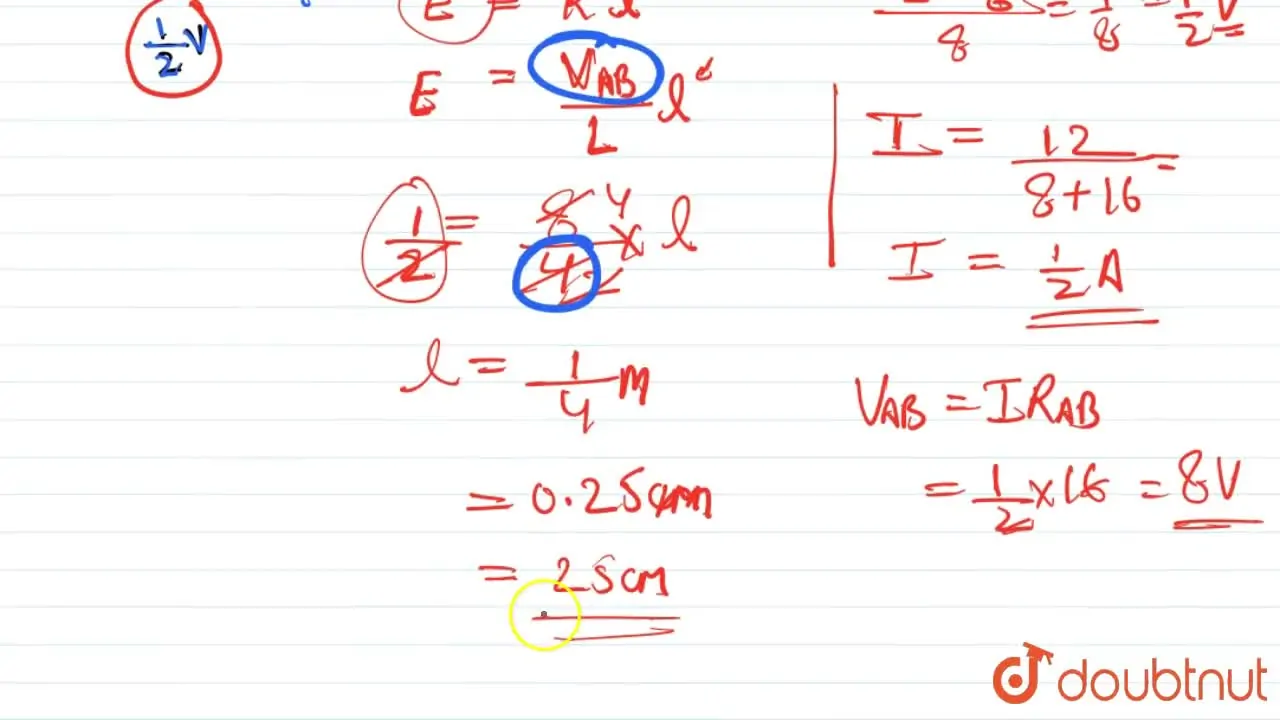 E = K l
1/2 V
E = V_AB / L l
1/2 = 8 4 / 4 2 × l
l = 1/4 m
= 0.25 m
= 25 cm
8 = 1/8 = 1/2 V
I = 12 / 8+16 =
I = 1/2 A
V_AB = I R_AB
= 1/2 × 16 = 8V
doubtnut